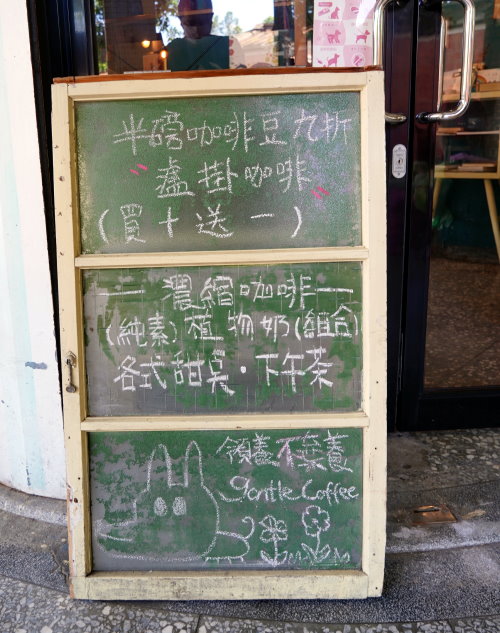 半磅咖啡豆九折
盧掛咖啡
(買十送一)
— 濃縮咖啡 —
(純素) 植物奶 (組合)
各式甜點・下午茶
領養不棄養
gentle Coffee